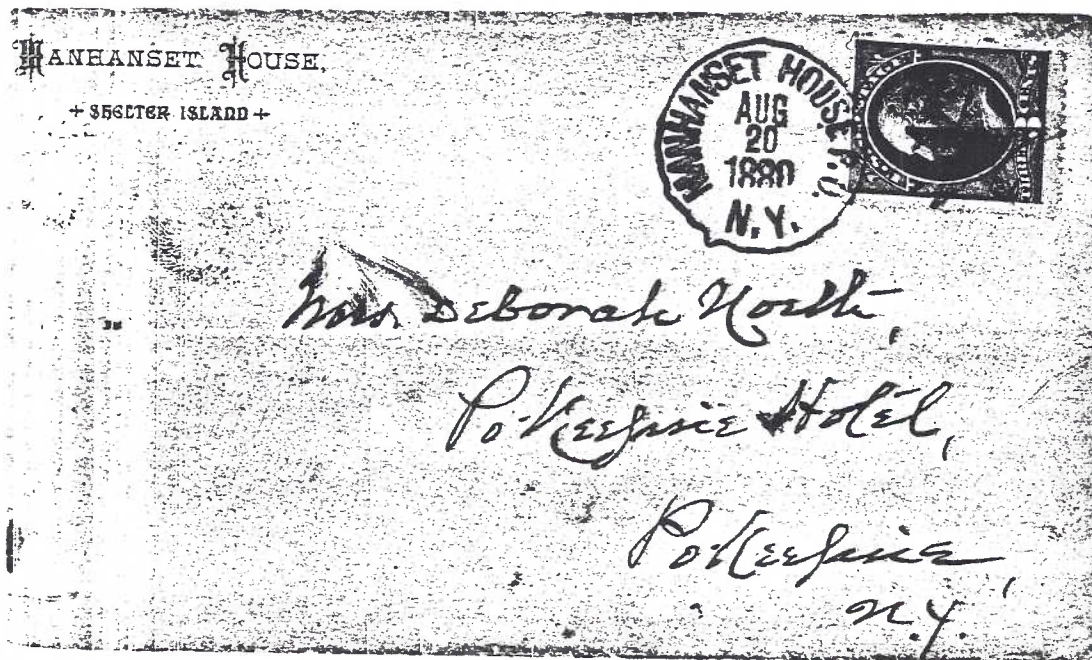 MANHANSET HOUSE,
+ SHELTER ISLAND +
MANHANSET HOUSE P.O.
AUG
20
1880
N.Y.
Mrs. Deborah North,
Po'Keepsie Hotel,
Po'Keepsie,
N.Y.